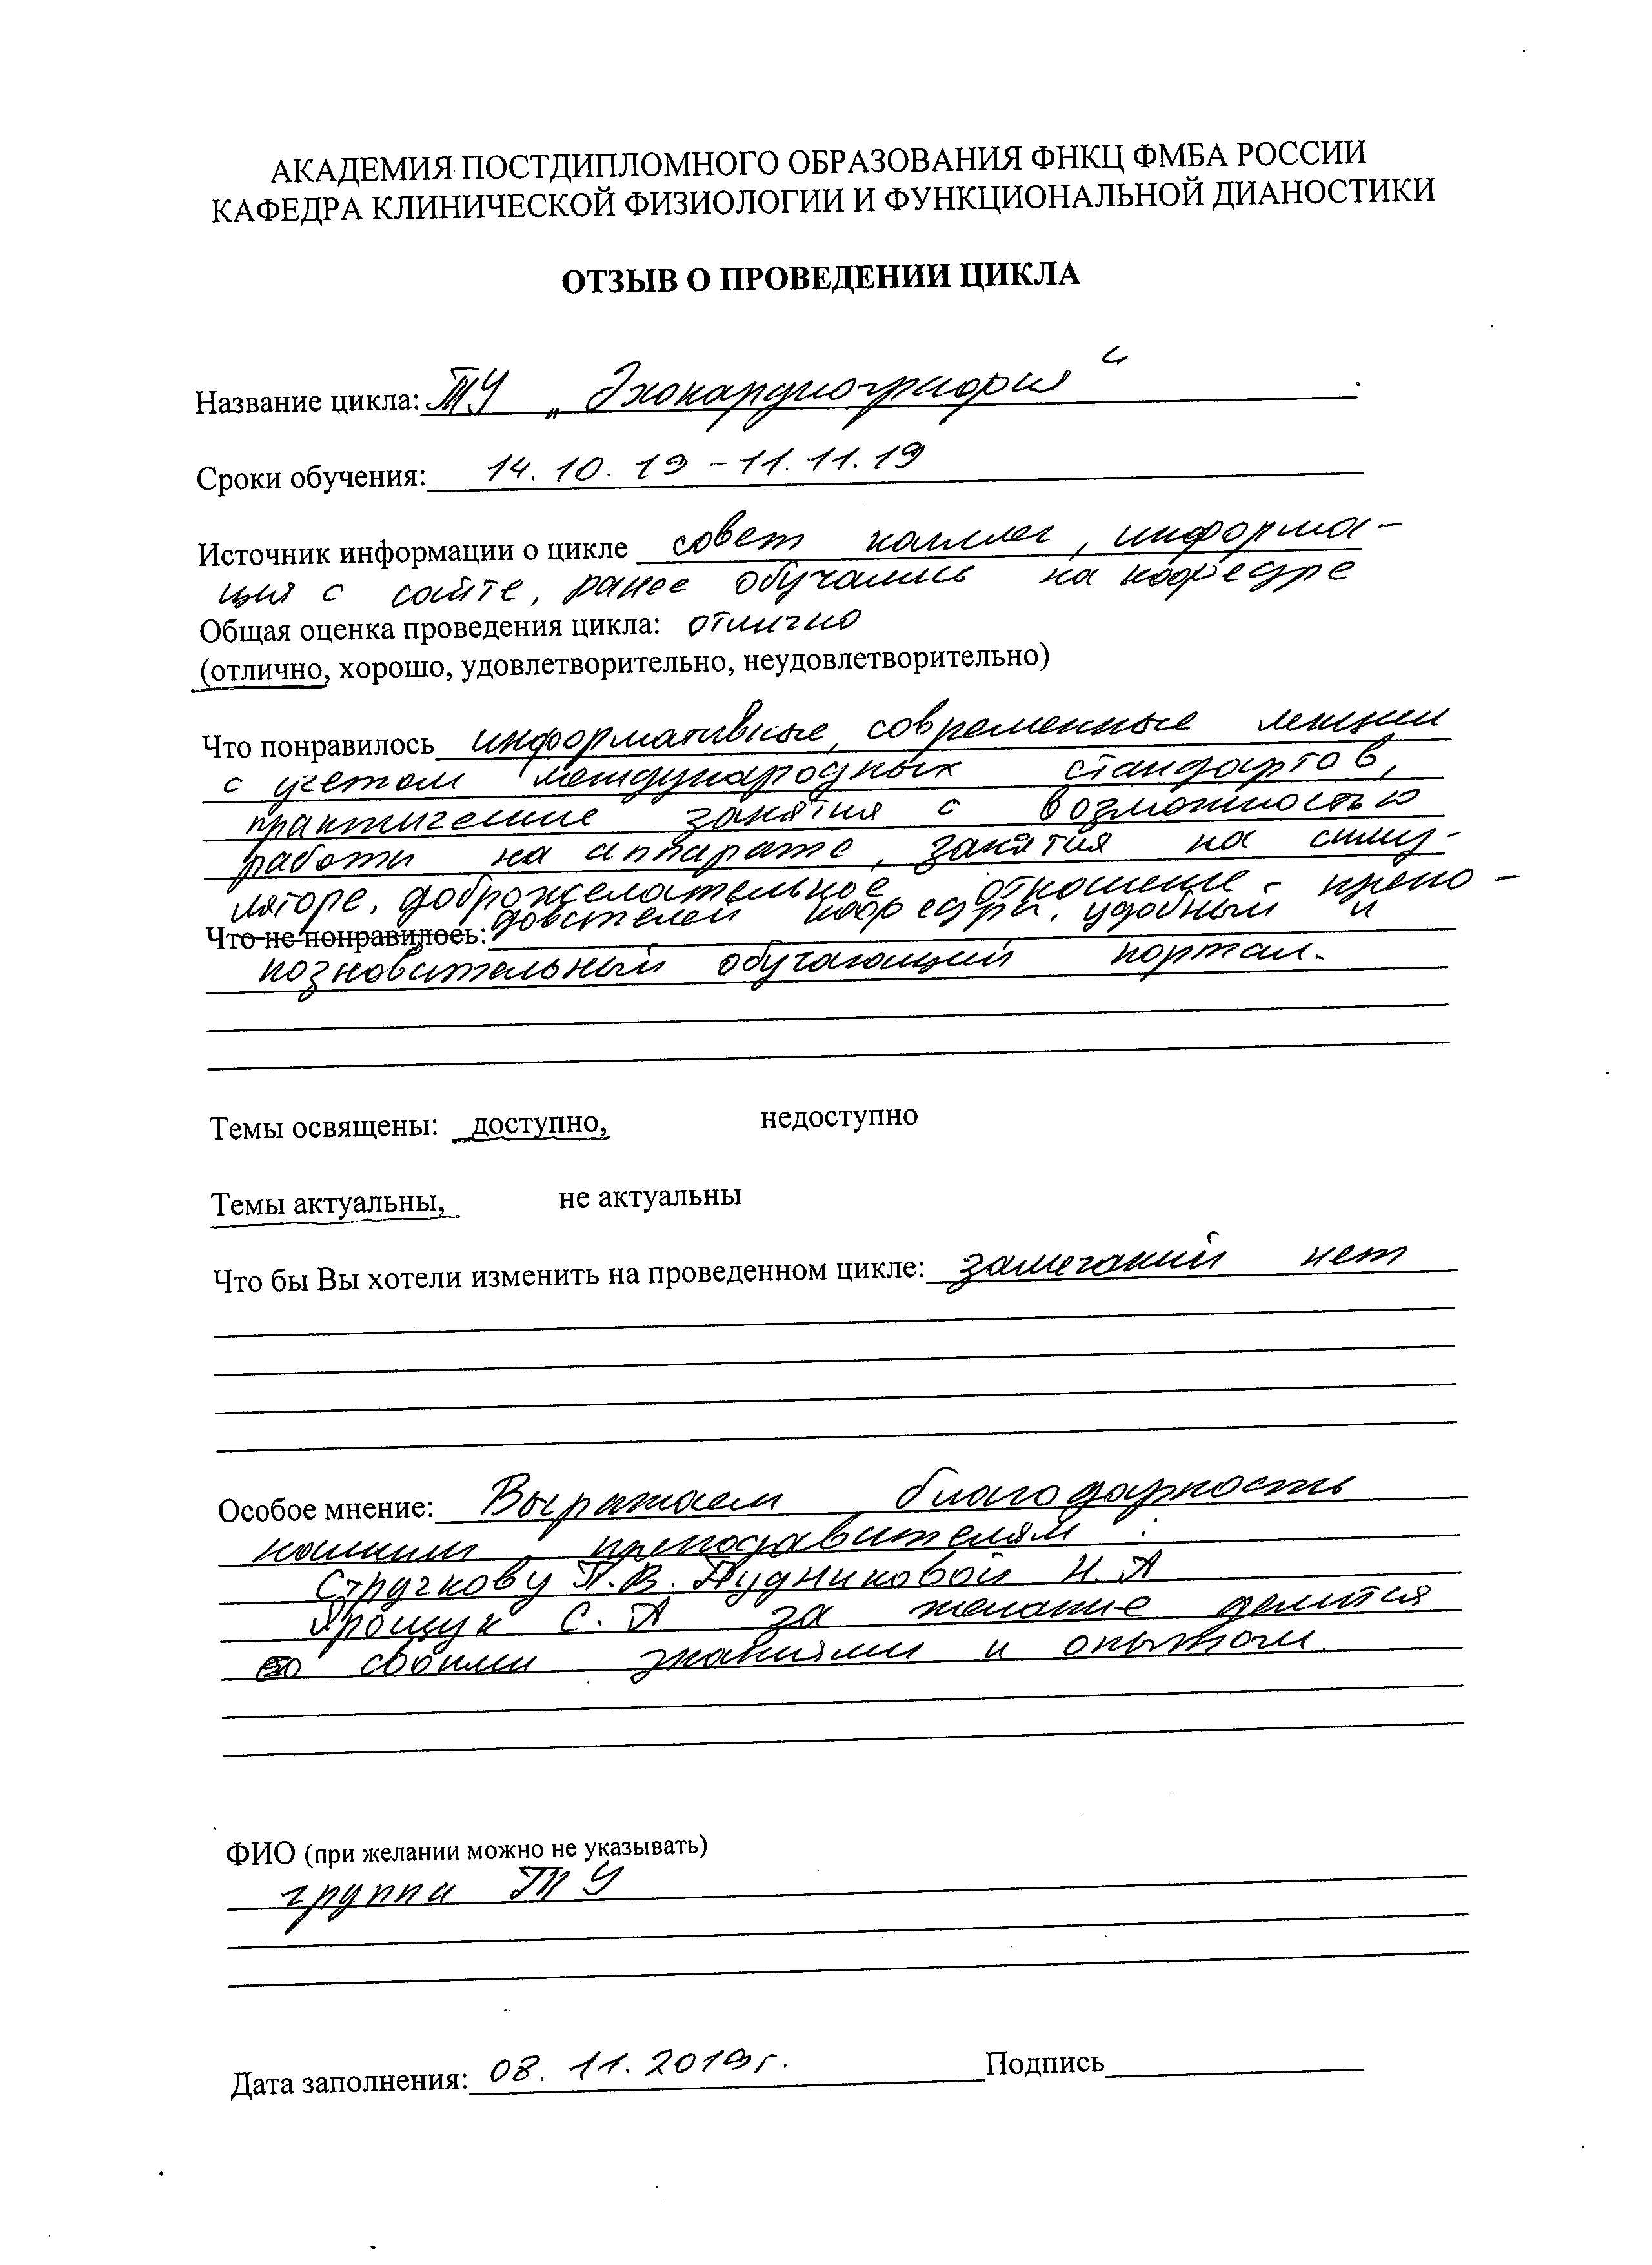 АКАДЕМИЯ ПОСТДИПЛОМНОГО ОБРАЗОВАНИЯ ФНКЦ ФМБА РОССИИ
КАФЕДРА КЛИНИЧЕСКОЙ ФИЗИОЛОГИИ И ФУНКЦИОНАЛЬНОЙ ДИАНОСТИКИ
ОТЗЫВ О ПРОВЕДЕНИИ ЦИКЛА
Название цикла: ТУ „Эхокардиография“
Сроки обучения: 14.10.19 – 11.11.19
Источник информации о цикле совет коллег, информа-
ция с сайте, ранее обучались на кафедре
Общая оценка проведения цикла: отлично
(отлично, хорошо, удовлетворительно, неудовлетворительно)
Что понравилось информативные, современные лекции
с учетом международных стандартов,
практические занятия с возможностью
работы на аппарате, занятия на симу-
ляторе, доброжелательное отношение препо-
Что не понравилось: давателей кафедры, удобный и
познавательный обучающий портал.
Темы освящены: доступно, недоступно
Темы актуальны, не актуальны
Что бы Вы хотели изменить на проведенном цикле: замечаний нет
Особое мнение: Выражаем благодарность
нашим преподавителям :
Стручкову П.В. Дудниковой Н.А
Ярощук С.А за желание делится
со своими знаниями и опытом.
ФИО (при желании можно не указывать)
группа ТУ
Дата заполнения: 08.11.2019г. Подпись